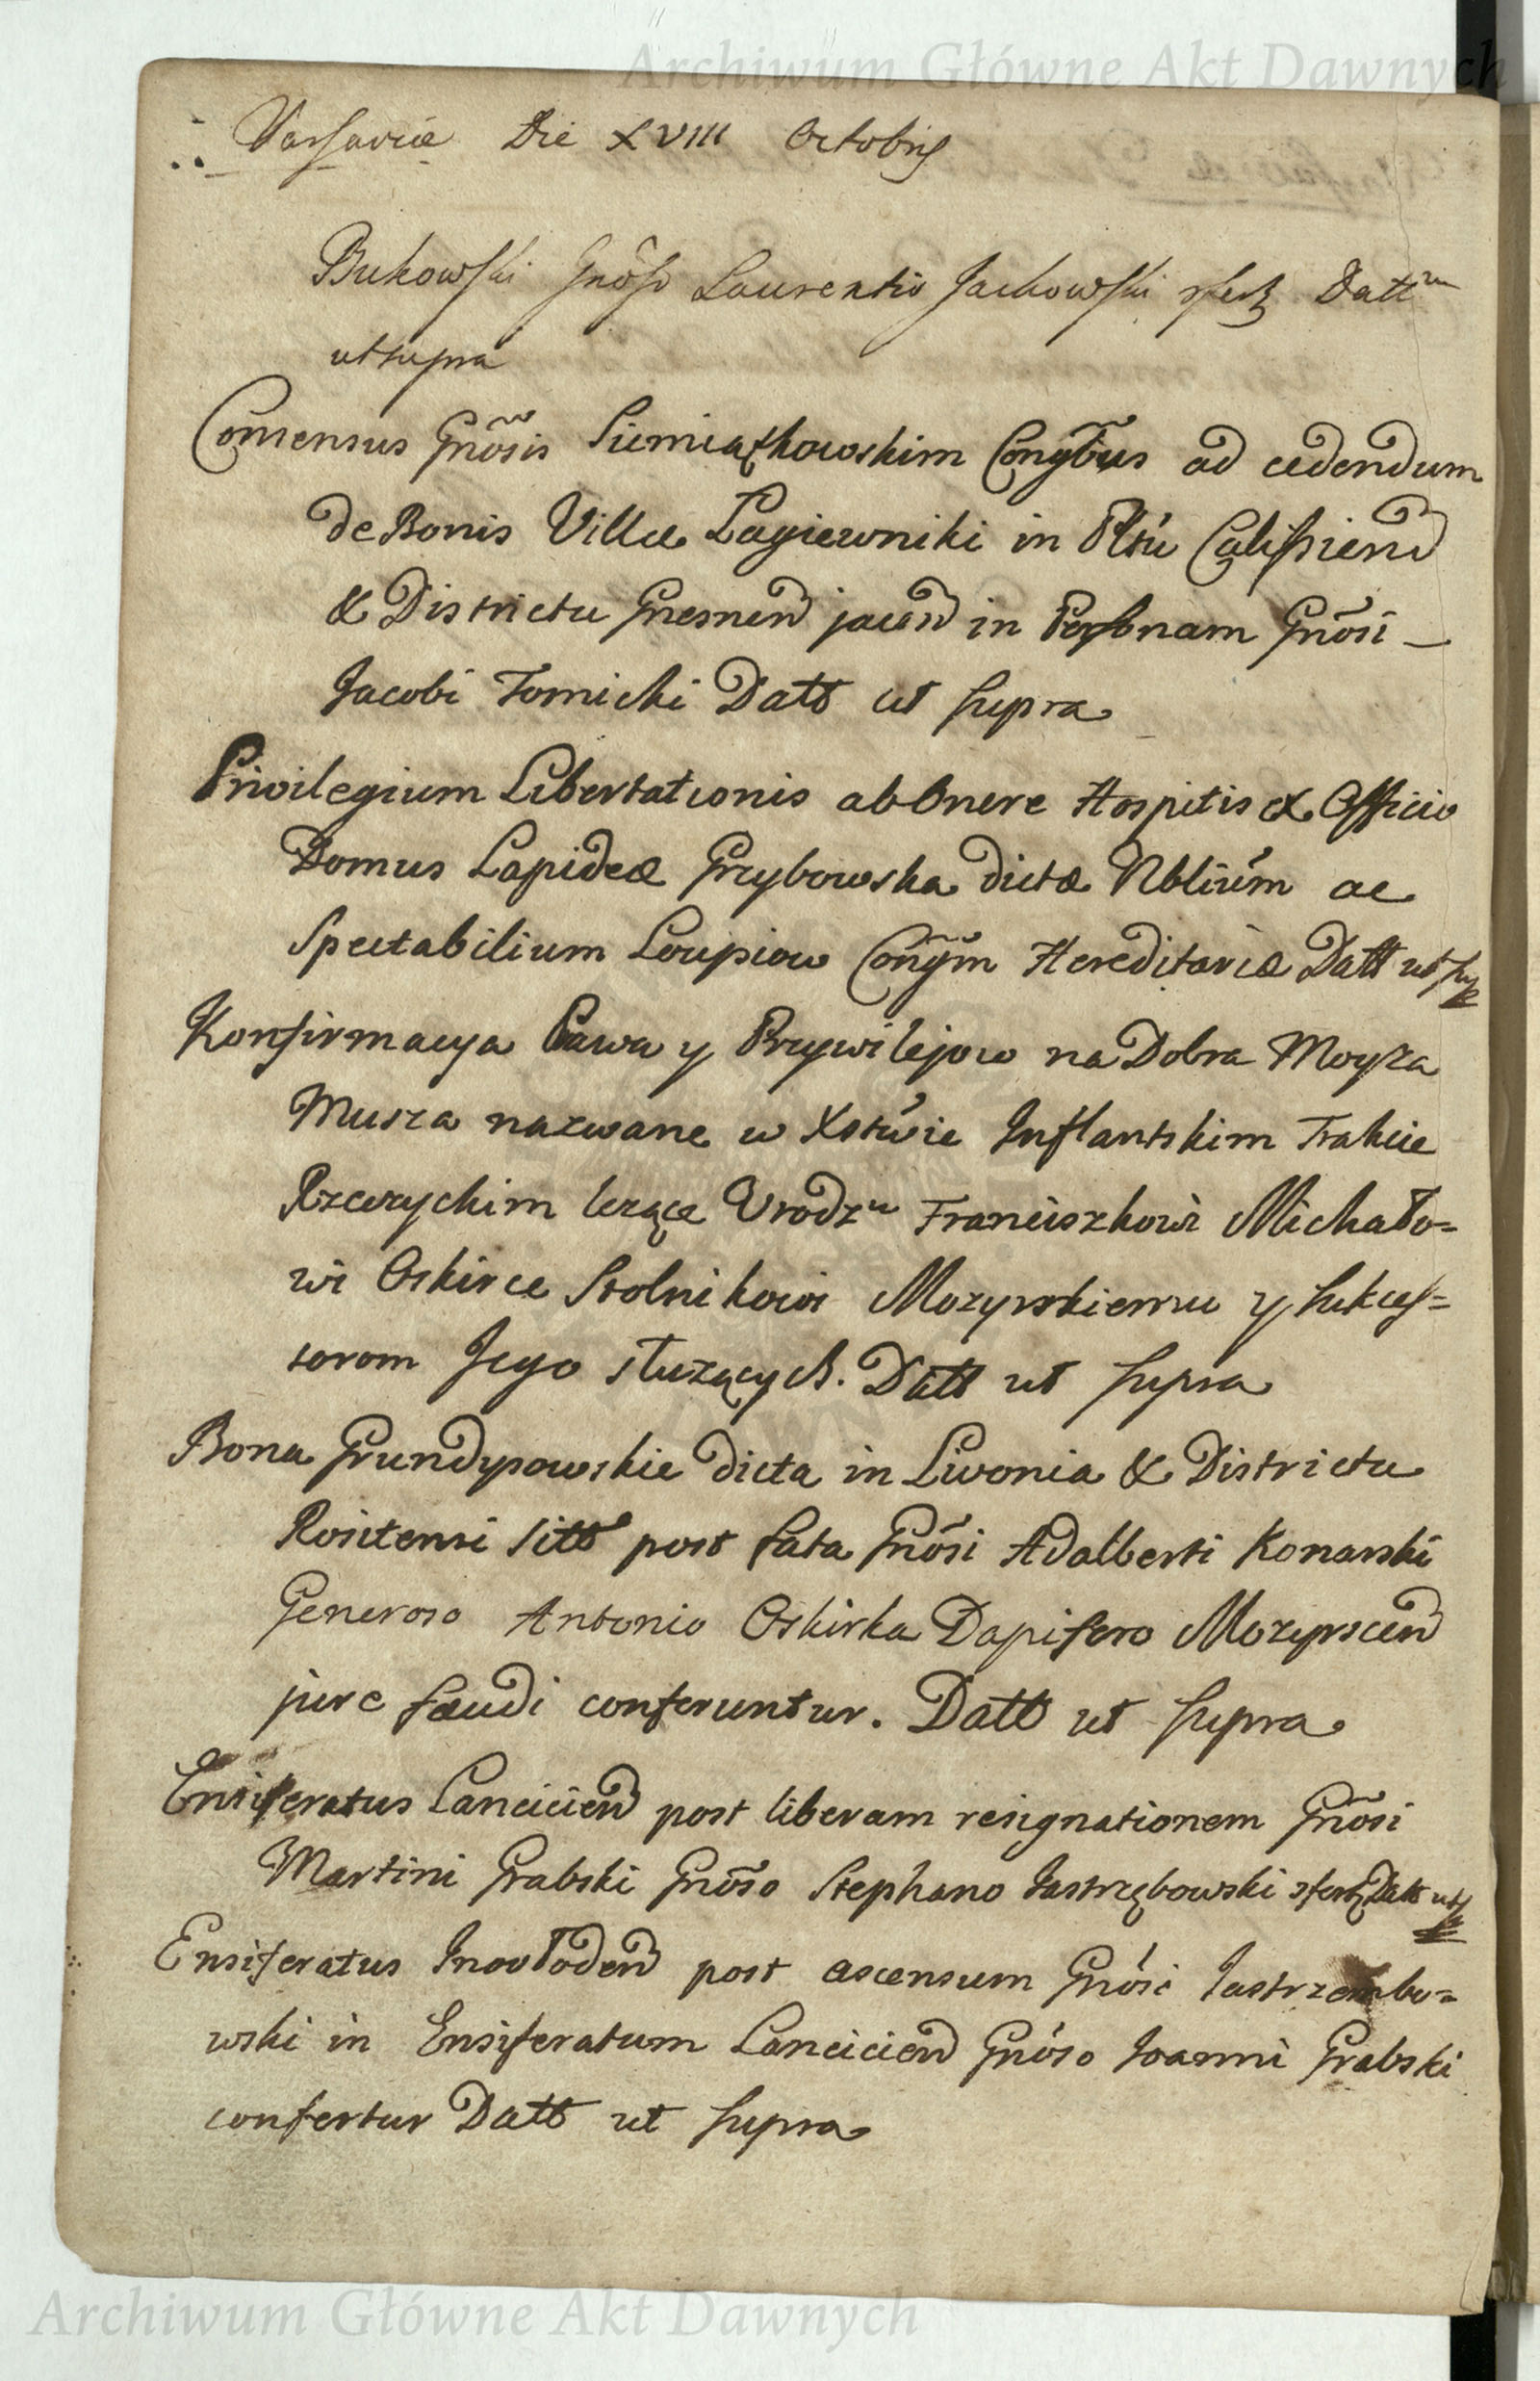 Archiwum Główne Akt Dawnych
Varsaviæ Die XVIII Octobris
Bukowski Gnõso Laurentio Jackowski sfert Datt m
ut supra
Consensus Gnõsis Siemiątkowskim Congbus ad cedendum
de Bonis Villæ Lagiewniki in Pltu Calissien
& Districtu Gnesnen jacen in Personam Gnõsi –
Jacobi Tomicki Datt ut supra
Privilegium Libertationis ab Onere Hospitis & Officio
Domus Lapideæ Grzybowska dictæ Nblium ac
Spectabilium Loupiow Congm Hereditariæ Datt ut sup
Konfirmacya Prawa y Przywilejow na Dobra Moyza
Musza nazwane w Xstwie Inflantskim Trakcie
Rzeczyckim lezące Urodz u Franciszkowi Michało=
wi Oskirce Stolnikowi Mozyrskiemu y sukces=
sorom Jego służących. Datt ut supra
Bona Grundypowskie dicta in Livonia & Districtu
Rositensi sitt post fata Gnõsi Adalberti Konarski
Generoso Antonio Oskirka Dapifero Mozyrscen
jure fæudi conferuntur. Datt ut supra
Ensiferatus Lancicien post liberam resignationem Gnõsi
Martini Grabski Gnõso Stephano Jastrzębowski sfert Datt ut sup
Ensiferatus Inowłoden post ascensum Gnõsi Jastrzembo=
wski in Ensiferatum Lancicien Gnõso Joanni Grabski
confertur Datt ut supra
Archiwum Główne Akt Dawnych